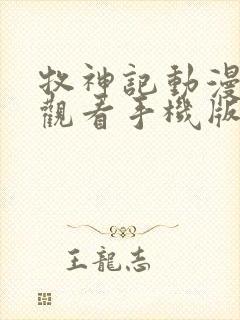 牧神記動漫
觀看手機版
王龍志